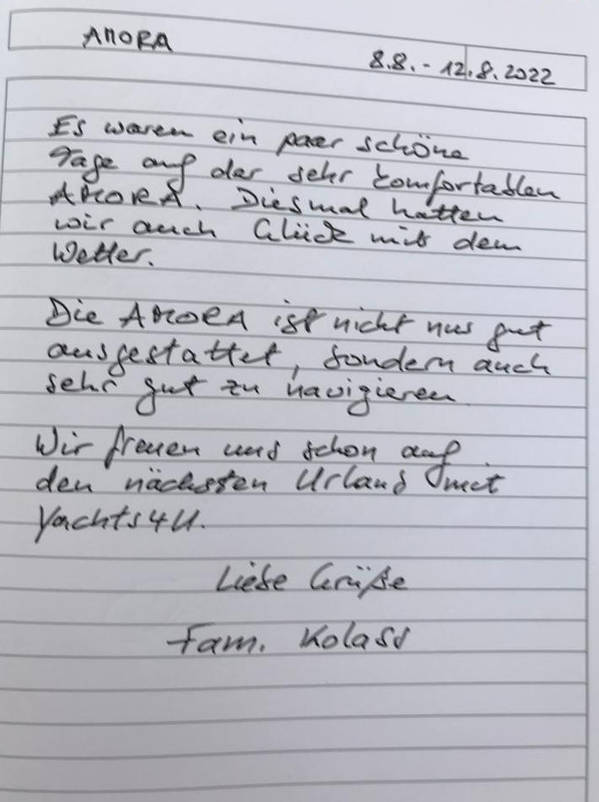 AMORA
8.8. - 12.8.2022
Es waren ein paar schöne
Tage auf der sehr komfortablen
AMORA. Diesmal hatten
wir auch Glück mit dem
Wetter.
Die AMORA ist nicht nur gut
ausgestattet, sondern auch
sehr gut zu navigieren
Wir freuen uns schon auf
den nächsten Urlaub mit
Yachts4U.
Liebe Grüße
Fam. Kolass